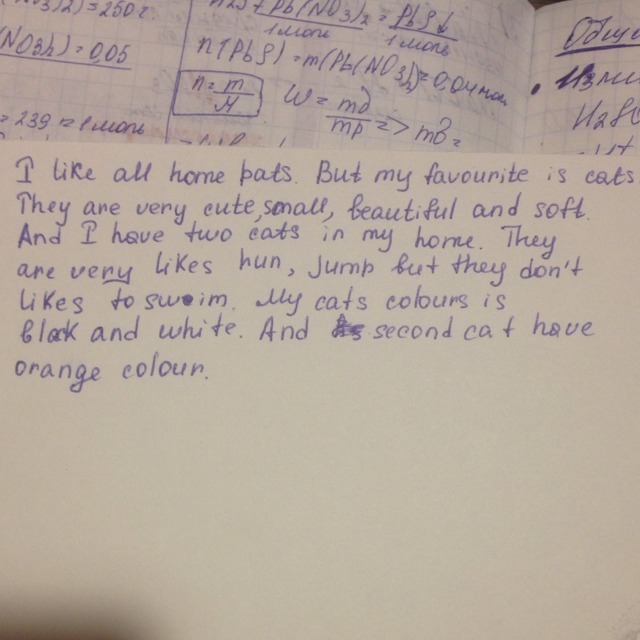 (NO₃)₂) = 250 г
(NO₃)₂) = 0.05
= 239 = 1 моль
Pb(NO₃)₂ = PbS↓
1 моль 1 моль
n(PbS) = m(Pb(NO₃)₂ = 0.04 моль
n = m/M
W = mв/mр => mв =
I like all home pats. But my favourite is cats
They are very cute, small, beautiful and soft.
And I have two cats in my home. They
are very likes hun, jump but they don't
likes to swim. My cats colours is
black and white. And second cat have
orange colour.